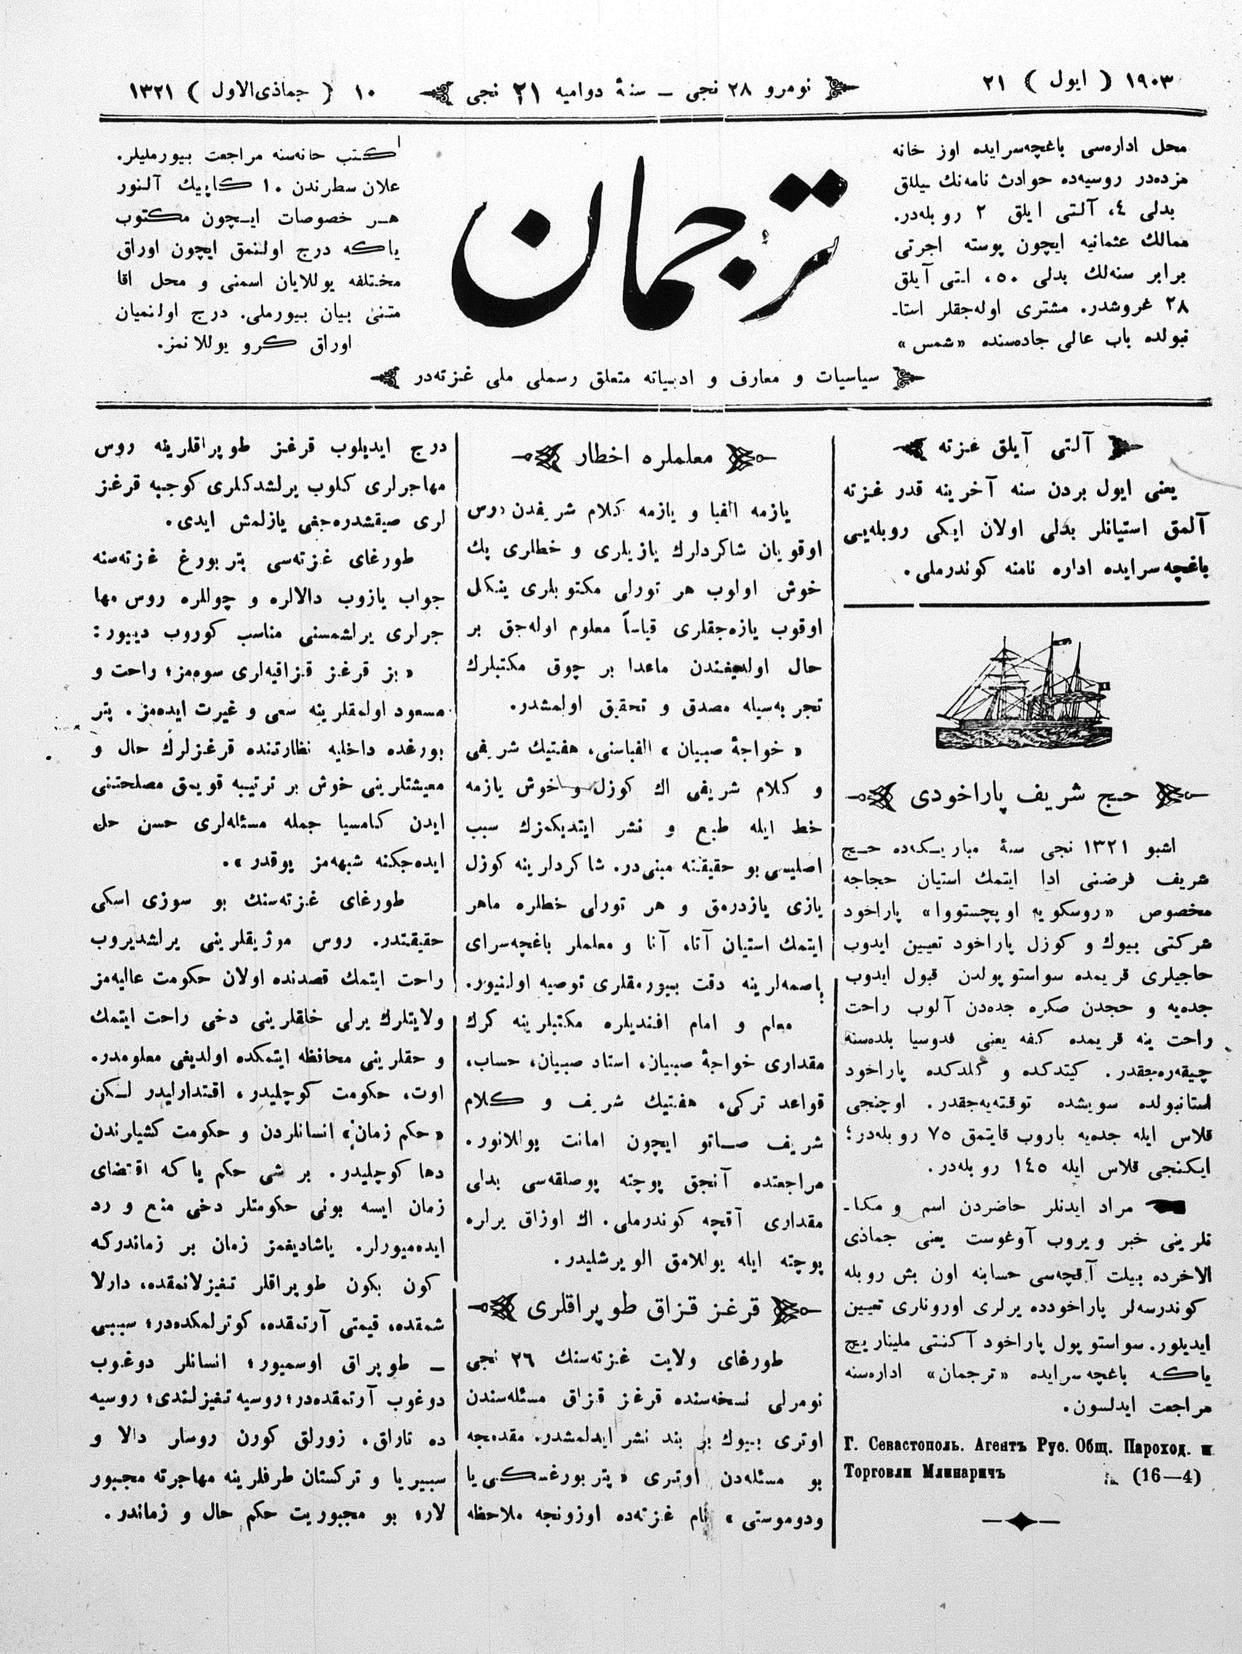 ١٩٠٣ ( ايول ) ٢١
نومرو ٢٨ نجى ــ سنۀ دواميه ٢١ نجى
١٠ ( جماذى‌الاول ) ١٣٢١
محل اداره‌سى باغچه‌سرايده اوز خانه
مزده‌در روسيه‌ده حوادث نامه‌نك ييللق
بدلى ٤، آلتى ايلق ٢ روبله‌در.
ممالك عثمانيه ايچون پوسته اجرتى
برابر سنه‌لك بدلى ٥٠، التى آيلق
٢٨ غروشدر. مشترى اوله‌جقلر استا‌ـ
نبولده باب عالى جاده‌سنده «شمس»
ترجمان
اكتب خانه‌سنه مراجعت بيورمليلر.
علان سطرندن ١٠ كاپيك آلنور
هر خصوصات ايچون مكتوب
ياكه درج اولنمق ايچون اوراق
مختلفه يوللايان اسمنى و محل اقا
متنى بيان بيورملى. درج اولنميان
اوراق كرو يوللانمز.
سياسيات و معارف و ادبياته متعلق رسملى ملى غزته‌در
آلتى آيلق غزته
يعنى ايول بردن سنه آخرينه قدر غزته
آلمق استيانلر بدلى اولان ايكى روبله‌يى
باغچه‌سرايده اداره نامنه كوندرملى.
حج شريف پاراخودى
اشبو ١٣٢١ نجى سنۀ مباريكه‌ده حج
شريف فرضنى ادا ايتمك استيان حجاجه
مخصوص «روسكويه اوپچستووا» پاراخود
شركتى بيوك و كوزل پاراخود تعيين ايدوب
حاجيلرى قريمده سواستوپولدن قبول ايدوب
جده‌يه و حجدن صكره جده‌دن آلوب راحت
راحت ينه قريمده كفه يعنى فدوسيا بلده‌سنه
چيقه‌ره‌جقدر. كيتدكده و كلدكده پاراخود
استانبولده سويشده توقته‌يه‌جقدر. اوچنجى
قلاس ايله جده‌يه باروب قايتمق ٧٥ روبله‌در؛
ايكنجى قلاس ايله ١٤٥ روبله‌در.
مراد ايدنلر حاضردن اسم و مكا‌ـ
نلرينى خبر ويروب آوغوست يعنى جماذى
الاخرده بيلت آقچه‌سى حسابنه اون بش روبله
كوندرسه‌لر پاراخودده يرلرى اورونارى تعيين
ايديلور. سواستوپول پاراخود آكنتى مليناريچ
ياكه باغچه‌سرايده «ترجمان» اداره‌سنه
مراجعت ايدلسون.
Г. Севастополь. Агентъ Рус. Общ. Пароход. и
Торговли Млинаричъ (16—4)
معلملره اخطار
يازمه الفبا و يازمه كلام شريفدن درس
اوقويان شاكردلرك يازيلرى و خطلرى پك
خوش اولوب هر تورلى مكتوبلرى ينكل
اوقوب يازه‌جقلرى قياساً معلوم اوله‌جق بر
حال اولديغندن ماعدا بر چوق مكتبلرك
تجربه‌سيله مصدق و تحقيق اولمشدر.
« خواجۀ صبيان » الفباسنى، هفتيك شريفى
و كلام شريفى اك كوزل و خوش يازمه
خط ايله طبع و نشر ايتديكمزك سبب
اصليسى بو حقيقته مبنى‌در. شاكردلرينه كوزل
يازى يازدرمق و هر تورلى خطلره ماهر
ايتمك استيان آتا، آنا و معلملر باغچه‌سراى
باصمه‌لرينه دقت بيورمقلرى توصيه اولنيور.
معلم و امام افنديلره مكتبلرينه كرك
مقدارى خواجۀ صبيان، استاد صبيان، حساب،
قواعد تركى، هفتيك شريف و كلام
شريف صاتو ايچون امانت يوللانور.
مراجعتده آنجق پوچته پوصلقه‌سى بدلى
مقدارى آقچه كوندرملى. اك اوزاق يرلره
پوچته ايله يوللامق الويرشليدر.
قرغز قزاق طوپراقلرى
طورغاى ولايت غزته‌سنك ٢٦ نجى
نومرلى نسخه‌سنده قرغز قزاق مسئله‌سندن
اوترى بيوك بر بند نشر ايدلمشدر. مقدمجه
بو مسئله‌دن اوترى « پتربورغسكى يا
ودوموستى » نام غزته‌ده اوزونجه ملاحظه
درج ايديلوب قرغز طوپراقلرينه روس
مهاجرلرى كلوب يرلشدكلرى كوجيه قرغز
لرى صيقشدره‌جغى يازلمش ايدى.
طورغاى غزته‌سى پتربورغ غزته‌سنه
جواب يازوب دالالره و چوللره روس مها
جرلرى يرلشمسنى مناسب كوروب دييور:
« بز قرغز قزاقيه‌لرى سوه‌مز؛ راحت و
مسعود اولمقلرينه سعى و غيرت ايده‌مز. پتر
بورغده داخليه نظارتنده قرغزلرك حال و
معيشتلرينى خوش بر ترتيبه قويمق مصلحتنى
ايدن كامسيا جمله مسئله‌لرى حسن حل
ايده‌جكنه شبهه‌مز يوقدر ».
طورغاى غزته‌سنك بو سوزى اسكى
حقيقتدر. روس موژيقلرينى يرلشديروب
راحت ايتمك قصدنده اولان حكومت عاليه‌مز
ولايتلرك يرلى خلقلرينى دخى راحت ايتمك
و حقلرينى محافظه ايتمكده اولديغى معلومدر.
اوت، حكومت كوچليدر، اقتدارليدر لكن
«حكم زمان» انسانلردن و حكومت كشيلرندن
دها كوچليدر. بر شى حكم ياكه اقتضاى
زمان ايسه بونى حكومتلر دخى منع و رد
ايده‌ميورلر. ياشاديغمز زمان بر زماندركه
كون بكون طوپراقلر تغيزلانمقده، دارلا
شمقده، قيمتى آرتمقده، كوترلمكده‌در؛ سببى
ــ طوپراق اوسميور؛ انسانلر دوغوب
دوغوب آرتمقده‌در؛ روسيه تغيزلندى؛ روسيه
ده تاراق، زورلق كورن روسلر دالا و
سيبيريا و تركستان طرفلرينه مهاجرته مجبور
لار؛ بو مجبوريت حكم حال و زماندر.